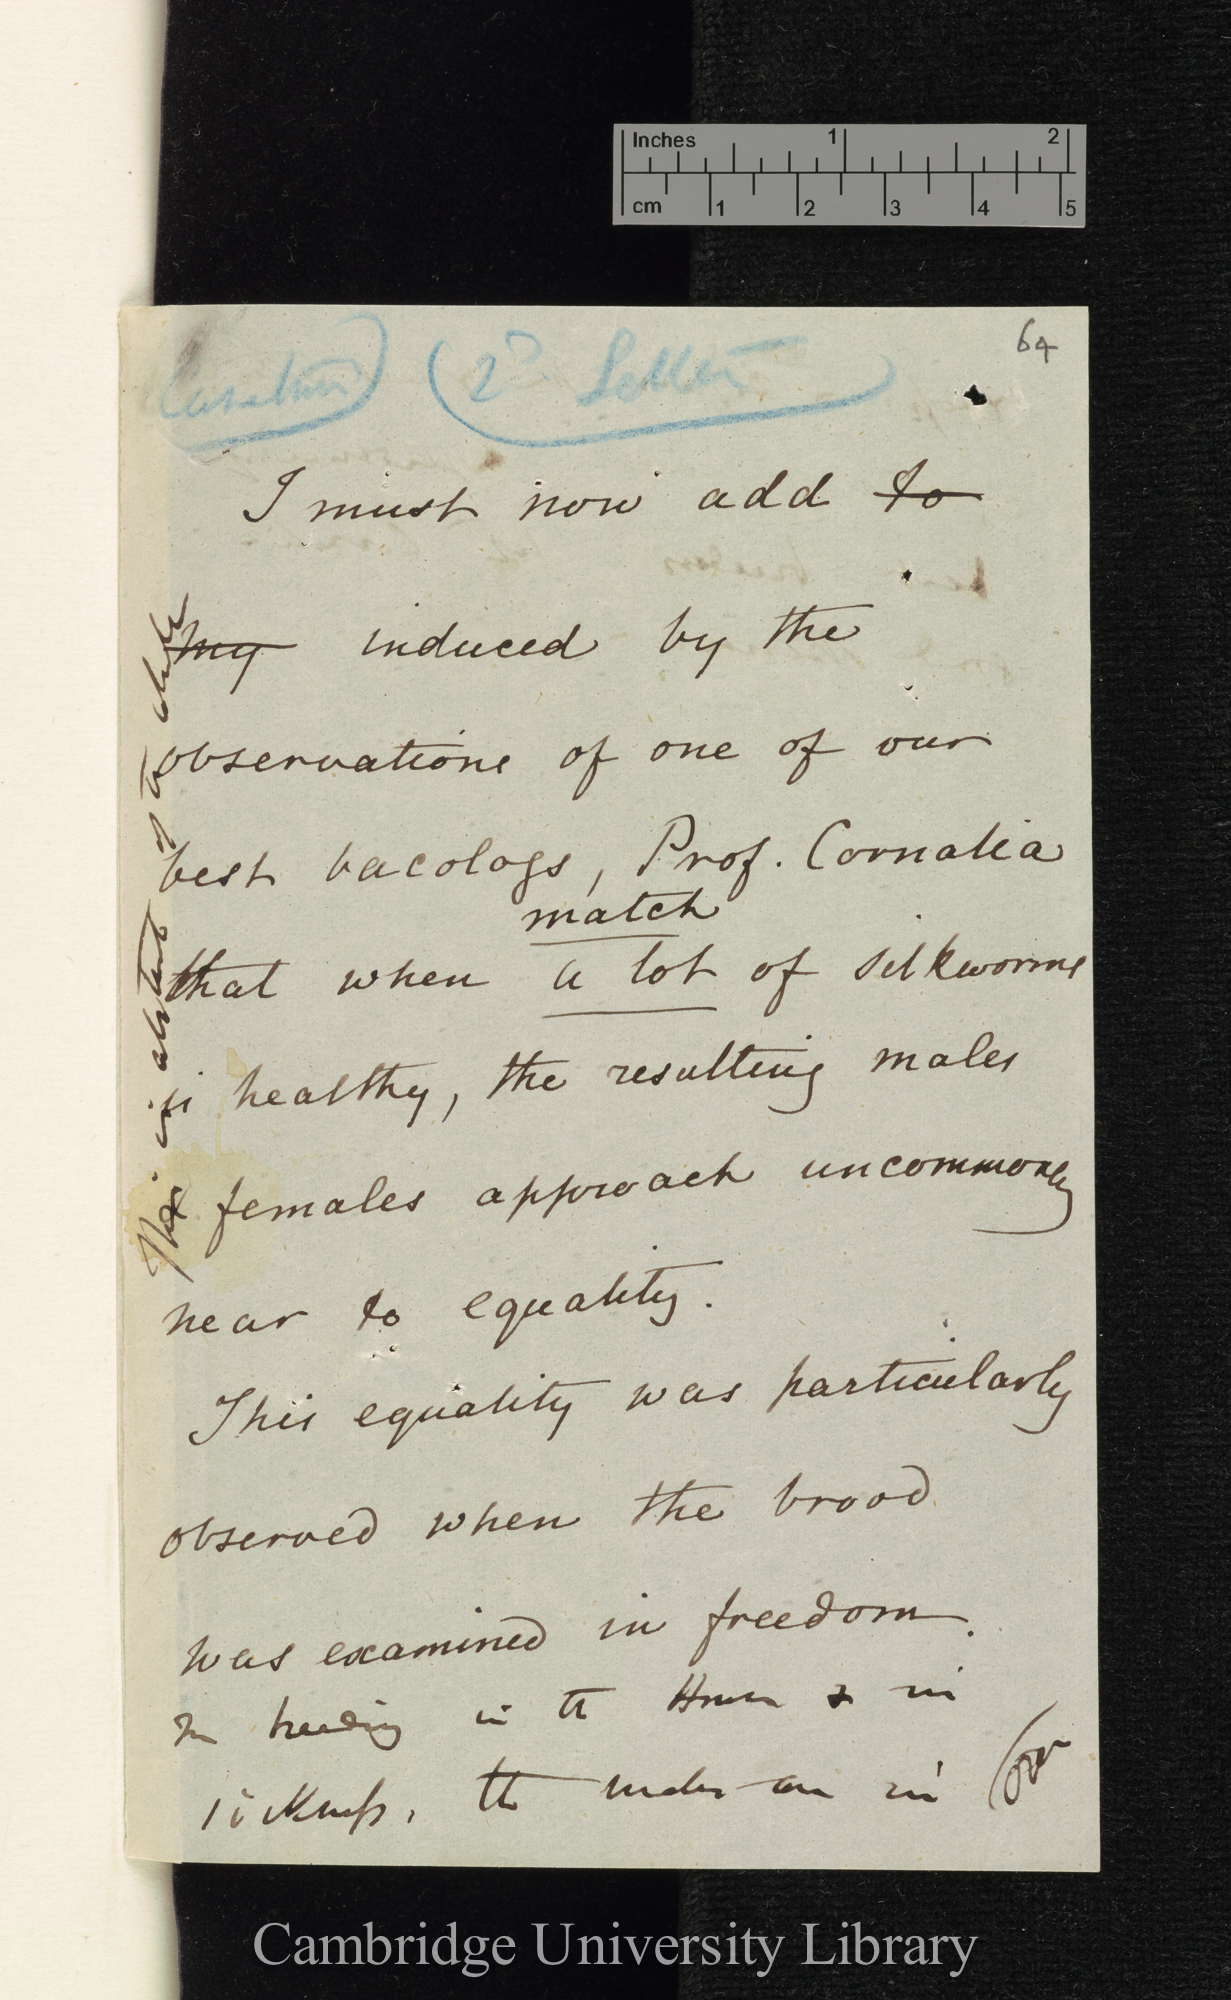 Inches 1 2
cm 1 2 3 4 5
64
Canestrini) (2d Letter
I must now add to
my induced by the
observations of one of our
best bacologs, Prof. Cornalia
match
that when a lot of silkworms
is healthy, the resulting males
& females approach uncommonly
near to equality.
This equality was particularly
observed when the brood
was examined in freedom.
In breeding in the House & in
sickness, the males are in (over
This is abstract of the whole
Cambridge University Library